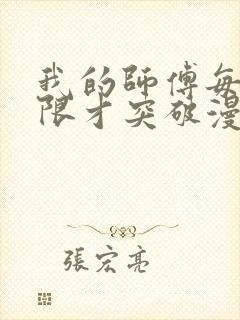 我的師傅每
限才突破漫
張宏亮